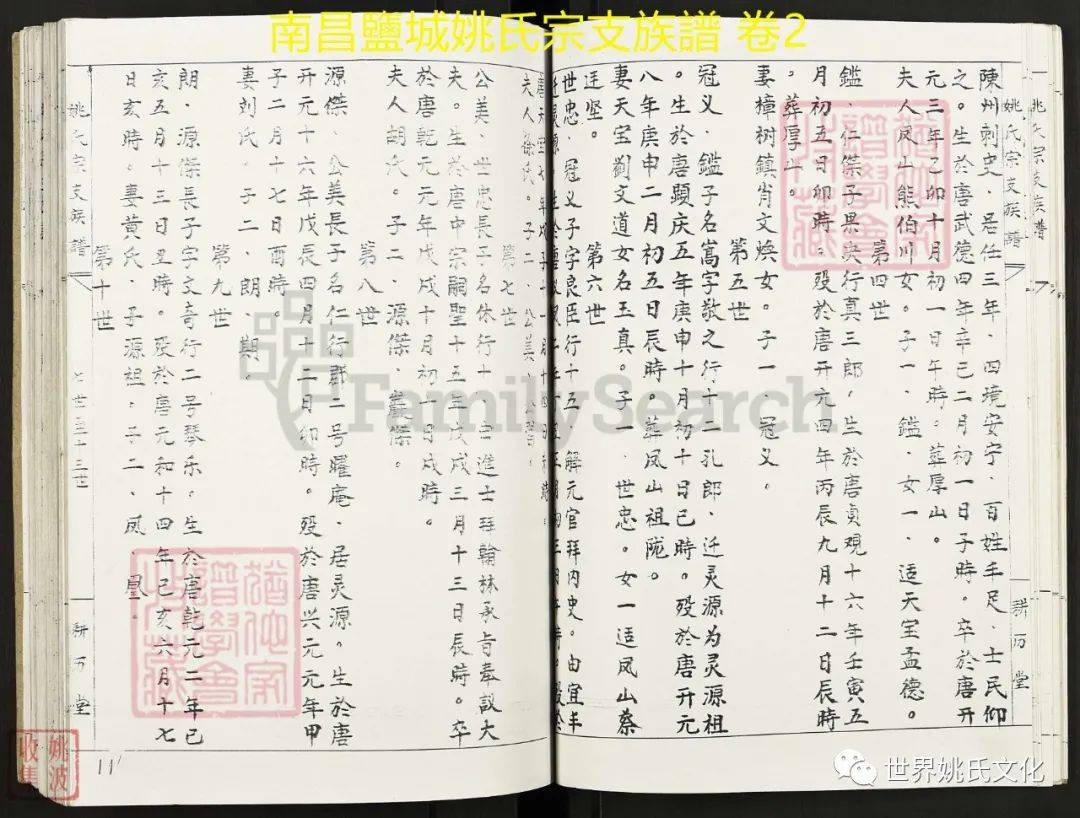 南昌鹽城姚氏宗支族譜 卷2
姚氏宗支族譜
姚氏宗支族譜
耕万堂
陳州刺史．居任三年．四境安宁．百姓手足．士民仰
之。生於唐武德四年辛巳二月初一日子時。卒於唐开
元三年乙卯十月初一日午時。葬厚山。
夫人凤山熊伯川女。子一．鑑．女一．适天宝孟德。
第四世
鑑．仁傑子果決行真三郎．生於唐貞观十六年壬寅五
月初五日卯時．殁於唐开元四年丙辰九月十二日辰時
。葬厚山。
妻樟树鎮肖文焕女。子一．冠义。
第五世
冠义．鑑子名嵩字敬之行十二孔郎．迁灵源为灵源祖
。生於唐顕庆五年庚申十月初十日巳時。殁於唐开元
八年庚申二月初五日辰時。葬凤山祖陇。
妻天宝劉文道女名玉真。子一．世忠。女一适凤山蔡
廷坚。
第六世
世忠．冠义子字良臣行十五．解元官拜内史。由宜丰
夫人徐氏。子二．公美．
第七世
公美．世忠長子名休行十一．官進士拜翰林承旨奉議大
夫。生於唐中宗嗣聖十五年戊戌三月十三日辰時。卒
於唐乾元元年戊戌十月初一日戌時。
夫人胡氏。子二．源傑．嚴傑。
第八世
源傑．公美長子名仁行郡二号曜庵．居灵源。生於唐
开元十六年戊辰四月十二日卯時。殁於唐兴元元年甲
子二月十七日酉時。
妻刘氏。子二．朗．期。
第九世
朗．源傑長子字文奇行二号琴乐。生於唐乾元二年己
亥五月十三日丑時。殁於唐元和十四年己亥六月十七
日亥時。妻黄氏．子源祖．子二．凤．凰．
第十世
姚氏宗支族譜
七世至十三世
耕万堂
11
FamilySearch
姚波
收集
世界姚氏文化